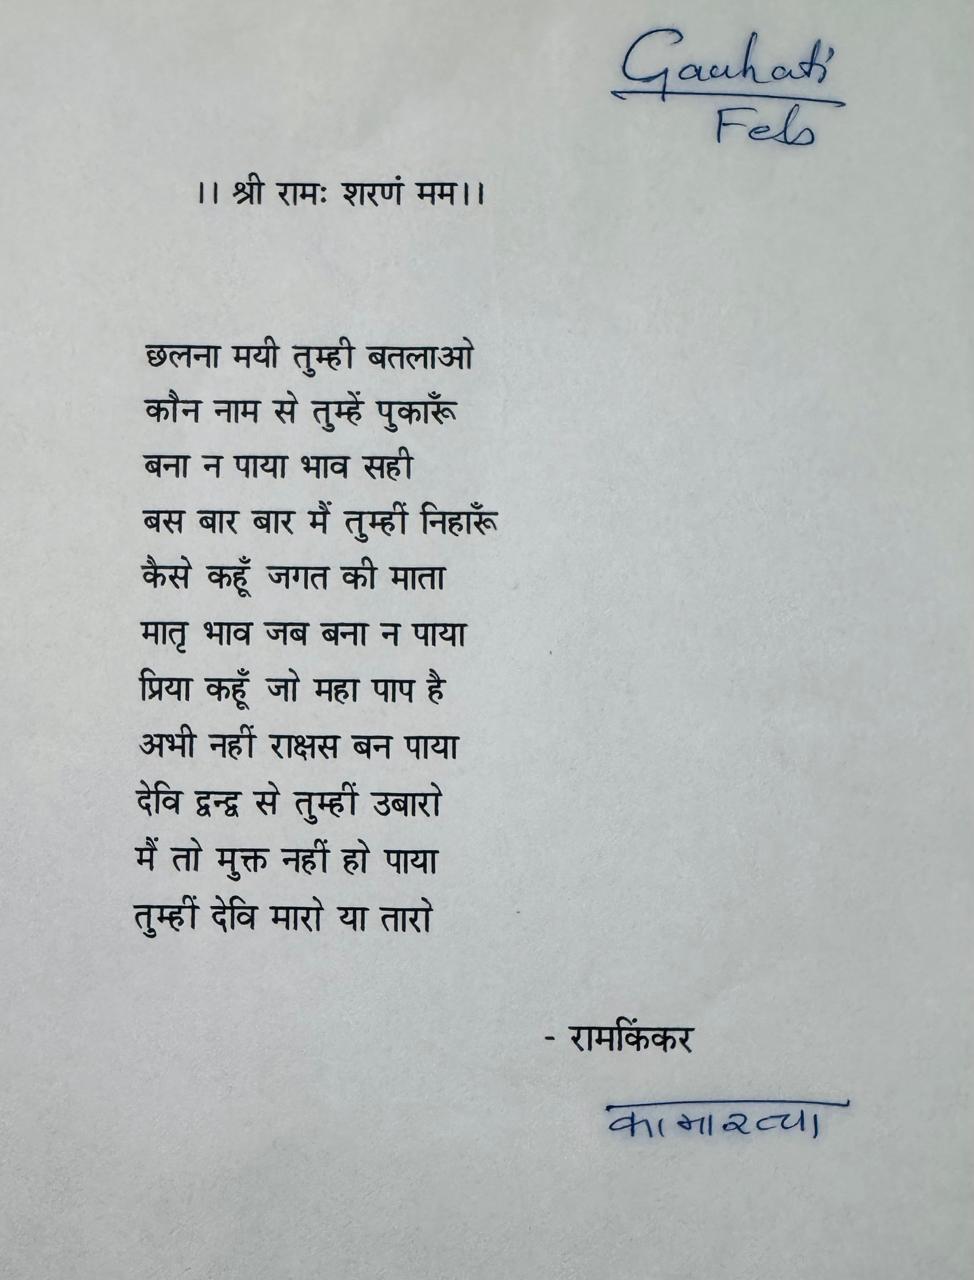 Gauhati
Feb
।। श्री रामः शरणं मम।।
छलना मयी तुम्ही बतलाओ
कौन नाम से तुम्हें पुकारूँ
बना न पाया भाव सही
बस बार बार मैं तुम्हीं निहारूँ
कैसे कहूँ जगत की माता
मातृ भाव जब बना न पाया
प्रिया कहूँ जो महा पाप है
अभी नहीं राक्षस बन पाया
देवि द्वन्द्व से तुम्हीं उबारो
मैं तो मुक्त नहीं हो पाया
तुम्हीं देवि मारो या तारो
- रामकिंकर
कामाख्या